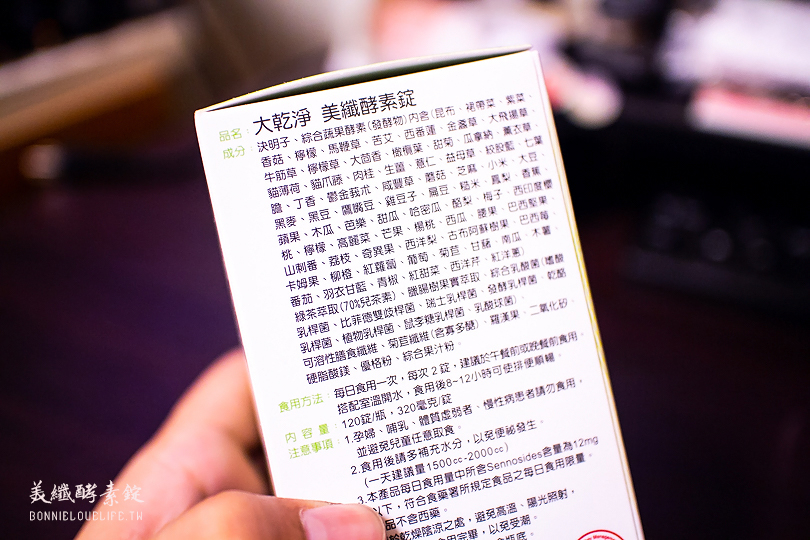 品名：大乾淨 美纖酵素錠
成分：決明子、綜合蔬果酵素(發酵物)內含(昆布、裙帶菜、紫菜、
香菇、檸檬、馬鞭草、苦艾、西番蓮、金盞草、大飛揚草、
牛筋草、檸檬草、大茴香、橄欖葉、甜菊、瓜拿納、薰衣草、
貓薄荷、貓爪藤、肉桂、生薑、薏仁、益母草、絞股藍、七葉
膽、丁香、鬱金莪朮、咸豐草、蘑菇、芝麻、小米、大豆、
黑麥、黑豆、鷹嘴豆、雞豆子、扁豆、糙米、鳳梨、香蕉、
蘋果、木瓜、芭樂、甜瓜、哈密瓜、酪梨、梅子、西印度櫻
桃、檸檬、高麗菜、芒果、楊桃、西瓜、腰果、巴西堅果、
山刺番、荔枝、奇異果、西洋梨、古布阿蘇樹果、巴西莓、
卡姆果、柳橙、紅蘿蔔、葡萄、菊苣、甘藷、南瓜、木薯、
番茄、羽衣甘藍、青椒、紅甜菜、西洋芹、紅洋蔥)
綠茶萃取(70%兒茶素)、臘腸樹果實萃取、綜合乳酸菌(嗜酸
乳桿菌、比菲德雙歧桿菌、瑞士乳桿菌、發酵乳桿菌、乾酪
乳桿菌、植物乳桿菌、鼠李糖乳桿菌、乳酸球菌)、
可溶性膳食纖維、菊苣纖維(含寡多醣)、羅漢果、二氧化矽、
硬脂酸鎂、優格粉、綜合果汁粉。
食用方法：每日食用一次，每次2錠，建議於午餐前或晚餐前食用，
搭配室溫開水，食用後8~12小時可使排便順暢。
內容量：120錠/瓶，320毫克/錠
注意事項：1.孕婦、哺乳、體質虛弱者、慢性病患者請勿食用，
並避免兒童任意取食。
2.食用後請多補充水分，以免便祕發生。
(一天建議量1500cc-2000cc)
3.本產品每日食用量中所含Sennosides含量為12mg
以下，符合食藥署所規定食品之每日食用限量。
品不含西藥。
乾燥陰涼之處，避免高溫、陽光照射，
食用完畢，以免受潮。
瓶底。
美纖酵素錠
BONNIELOVELIFE.TW